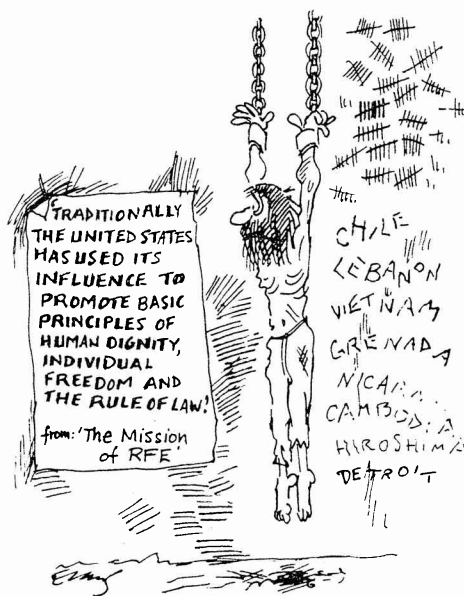 'TRADITIONALLY
THE UNITED STATES
HAS USED ITS
INFLUENCE TO
PROMOTE BASIC
PRINCIPLES OF
HUMAN DIGNITY,
INDIVIDUAL
FREEDOM AND
THE RULE OF LAW.'
from: 'The Mission
of RFE'
CHILE
LEBANON
VIETNAM
GRENADA
NICARA
CAMBODIA
HIROSHIMA
DETROIT